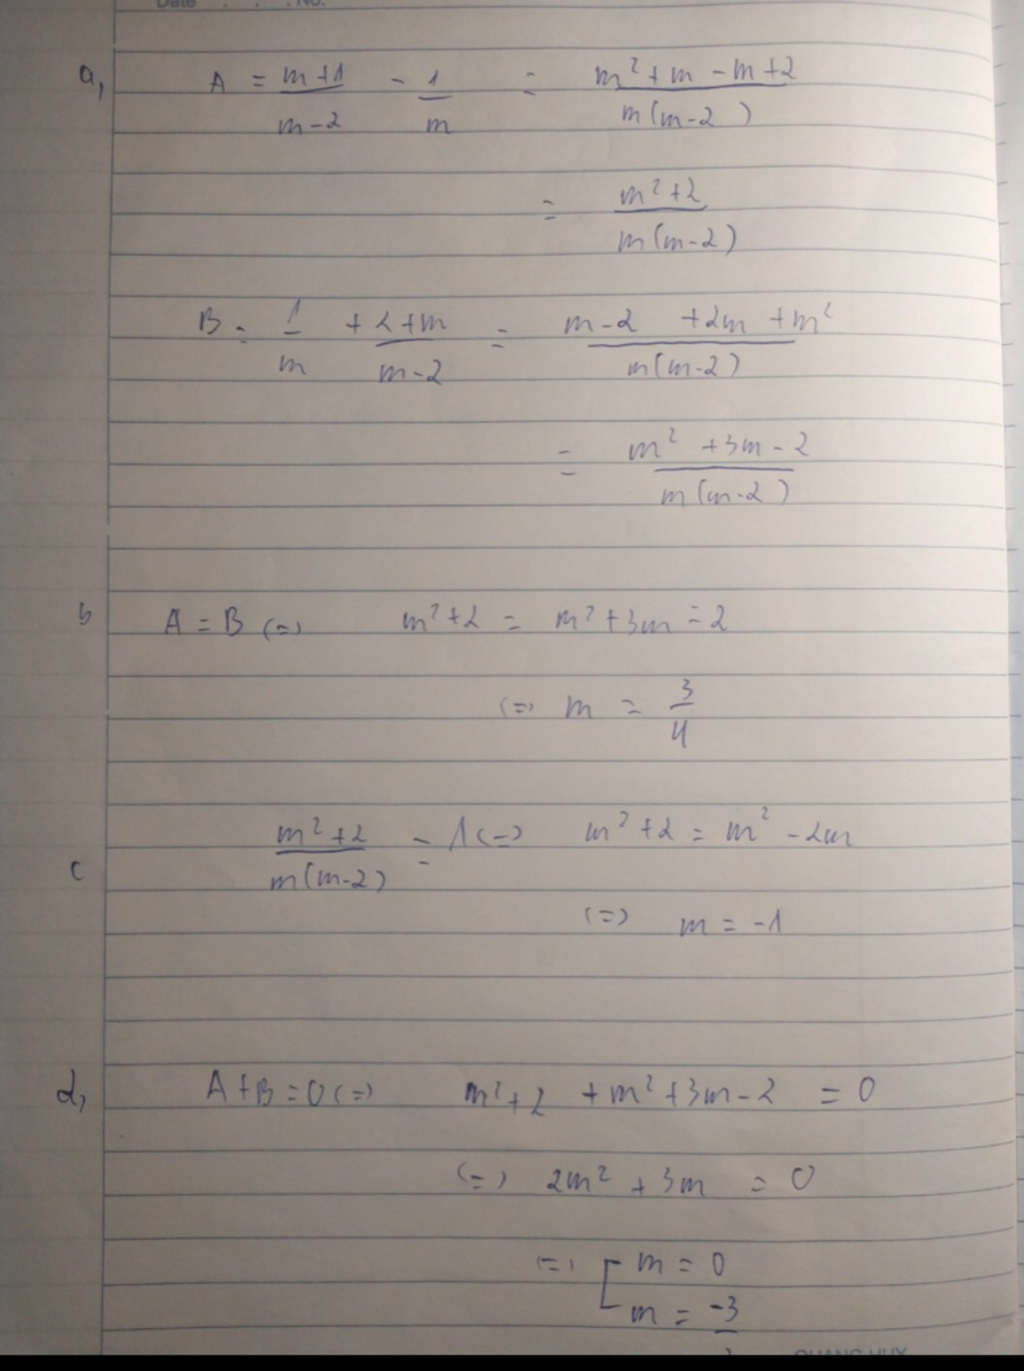 Date . . . No.
a, A = \frac{m+1}{m-2} - \frac{1}{m} = \frac{m^2+m-m+2}{m(m-2)}
= \frac{m^2+2}{m(m-2)}
B = \frac{1}{m} + \frac{2+m}{m-2} = \frac{m-2+2m+m^2}{m(m-2)}
= \frac{m^2+3m-2}{m(m-2)}
b A = B (=) m^2+2 = m^2+3m-2
(=) m = \frac{3}{4}
c \frac{m^2+2}{m(m-2)} = 1 (=) m^2+2 = m^2-2m
(=) m = -1
d, A+B=0 (=) m^2+2 +m^2+3m-2 = 0
(=) 2m^2 + 3m = 0
(=) [ m = 0
m = -3
QUANG HUY